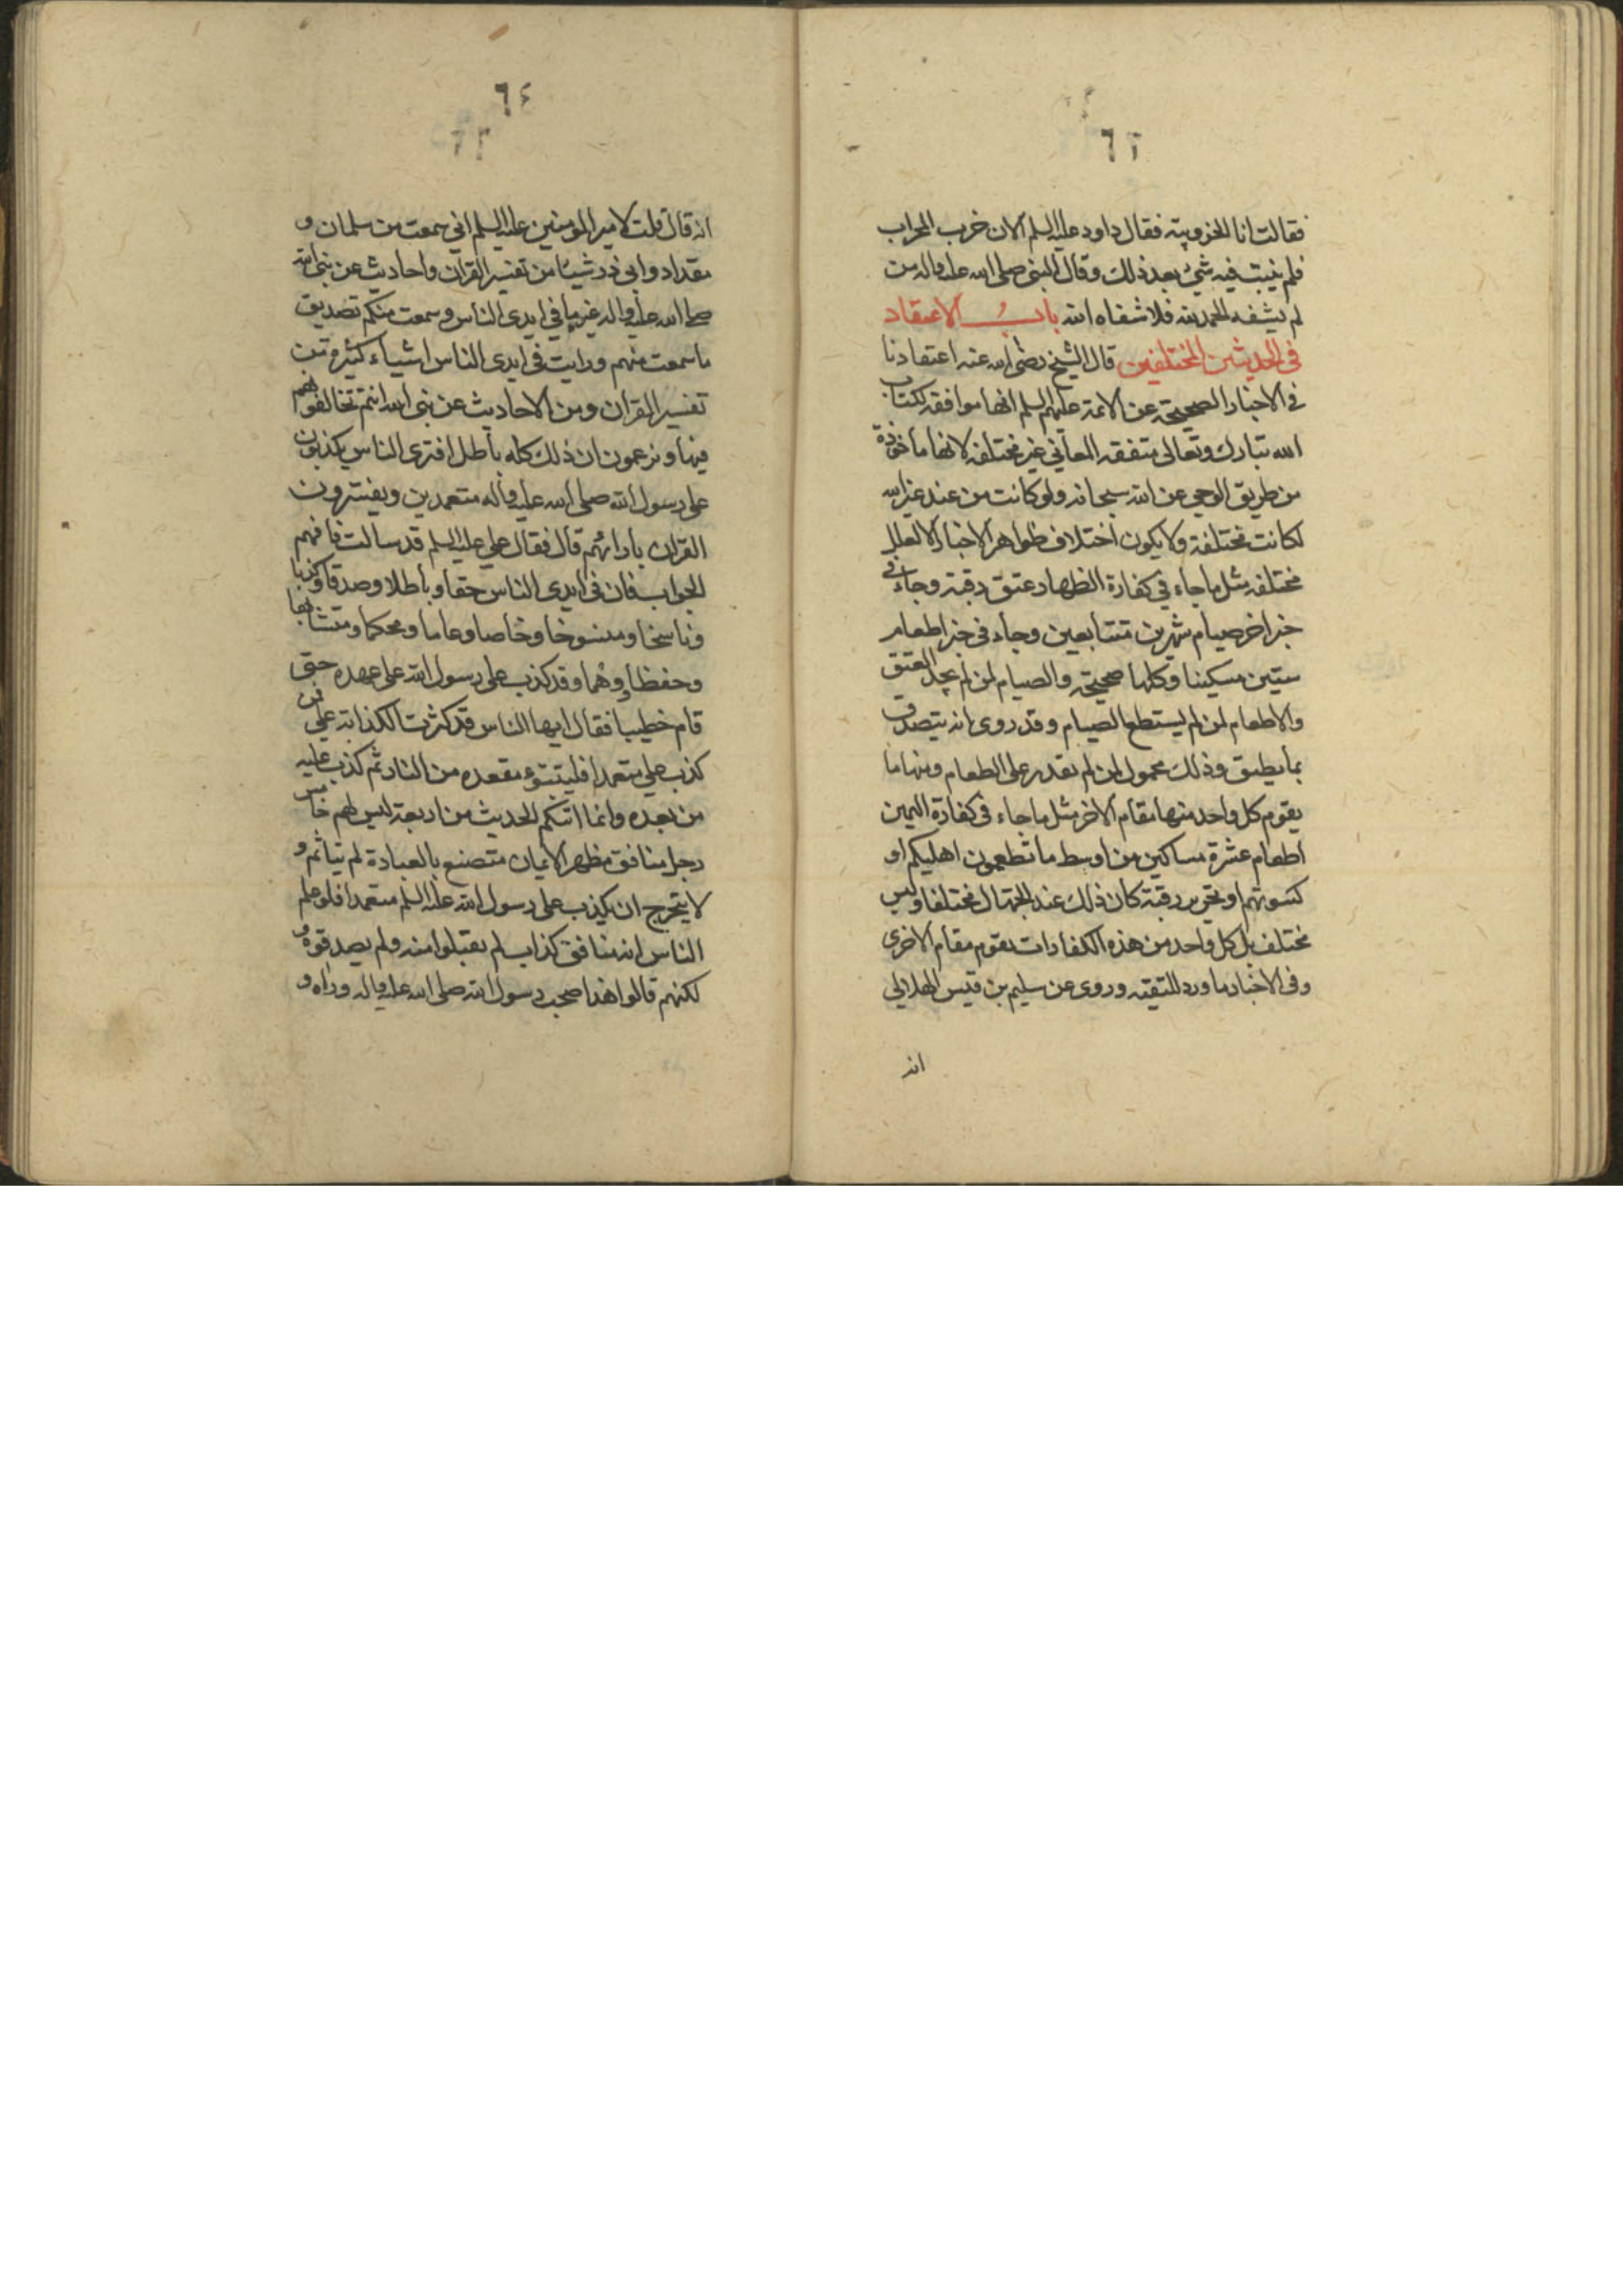 ٦٣
فقالت انا الخزوبته فقال داود عليه السلم الان خرب المحراب
فلم ينبت فيه شئ بعد ذلك وقال النبى صلى الله عليه واله من
لم يشفه الحمد لله فلا شفاه الله باب الاعتقاد
فى الحديثين المختلفين قال الشيخ رضى الله عنه اعتقادنا
فى الاخبار الصحيحة عن الائمة عليهم السلم انها موافقة لكتاب
الله تبارك وتعالى متفقة المعانى غير مختلفة لانها ماخوذة
من طريق الوحى عن الله سبحانه ولو كانت من عند غير الله
لكانت مختلفة ولا يكون اختلاف ظواهر الاخبار الا لعلل
مختلفة مثل ما جاء فى كفارة الظهار عتق رقبة وجاء فى
خبر اخر صيام شهرين متتابعين وجاء فى خبر اطعام
ستين مسكينا وكلها صحيحة والصيام لمن لم يجد العتق
والاطعام لمن لم يستطع الصيام وقد روى انه يتصدق
بما يطيق وذلك محمول لمن لم يقدر على الطعام ومنها ما
يقوم كل واحد منها مقام الاخر مثل ما جاء فى كفارة اليمين
اطعام عشرة مساكين من اوسط ما تطعمون اهليكم او
كسوتهم او تحرير رقبة كان ذلك عند الجهال مختلفا وليس
مختلف بل كل واحد من هذه الكفارات يقوم مقام الاخرى
وفى الاخبار ما ورد للتقية وروى عن سليم بن قيس الهلالى
انه
٦٤
٦٣
انه قال قلت لامير المومنين عليه السلم انى سمعت من سلمان و
مقداد وابى ذر شيئا من تفسير القران واحاديث عن نبى الله
صلى الله عليه واله غير ما فى ايدى الناس وسمعت منكم تصديق
ما سمعت منهم ورايت فى ايدى الناس اشياء كثيرة من
تفسير القران ومن الاحاديث عن نبى الله انتم تخالفونهم
فيها وتزعمون ان ذلك كله باطل افترى الناس يكذبون
على رسول الله صلى الله عليه واله متعمدين ويفسرون
القران بارائهم قال فقال على عليه السلم قد سالت فافهم
الجواب فان فى ايدى الناس حقا وباطلا وصدقا وكذبا
وناسخا ومنسوخا وخاصا وعاما ومحكما ومتشابها
وحفظا ووهما وقد كذب على رسول الله على عهده حتى
قام خطيبا فقال ايها الناس قد كثرت الكذابة على فمن
كذب على متعمدا فليتبوء مقعده من النار ثم كذب عليه
من بعده وانما اتىكم الحديث من اربعة ليس لهم خامس
رجل منافق مظهر الايمان متصنع بالعبادة لم يتاثم و
لا يتحرج ان يكذب على رسول الله عليه السلم متعمدا فلو علم
الناس انه منافق كذاب لم يقبلوا منه ولم يصدقوه و
لكنهم قالوا هذا صحب رسول الله صلى الله عليه واله وراه و